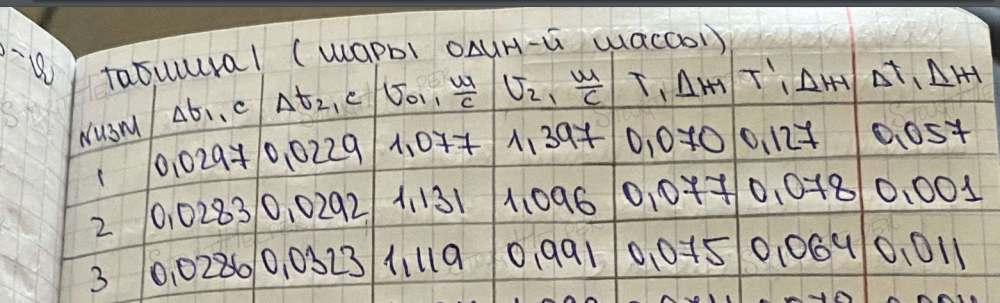 Таблица 1 (шары один-й массы)
№изм Δt1, c Δt2, c V01, м/с V2, м/с T, Дж T', Дж ΔT, Дж
1 0,0297 0,0229 1,077 1,397 0,070 0,127 0,057
2 0,0283 0,0292 1,131 1,096 0,077 0,078 0,001
3 0,0286 0,0323 1,119 0,991 0,075 0,064 0,011